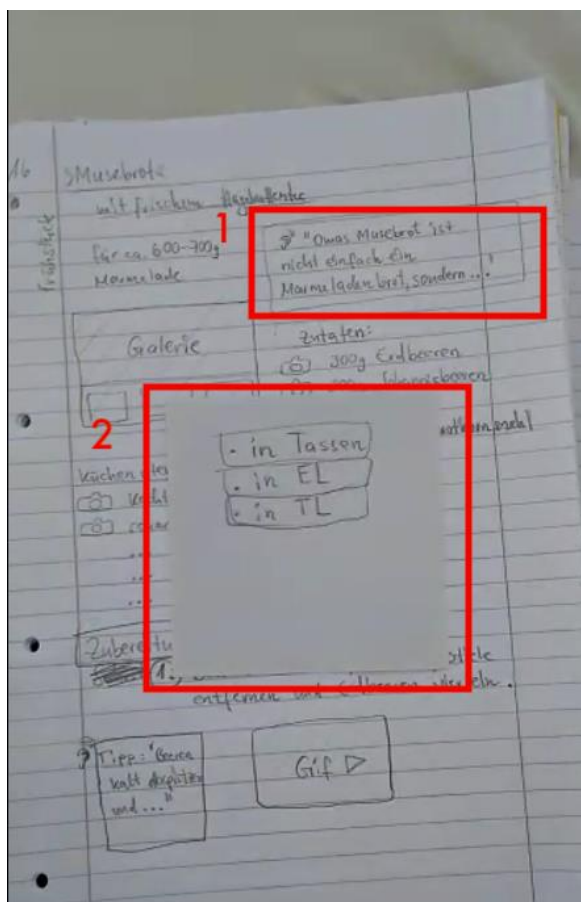 16
Musebrote
mit frischen
Frühstück
für ca. 600-700g
Marmelade
1
"Omas Musebrot ist
nicht einfach ein
Marmeladenbrot, sondern ..."
Galerie
Zutaten:
300g Erdbeeren
Johannisbeeren
2
· in Tassen
· in EL
· in TL
Küchen
...
...
...
Zubereitu
1.,
stiele
entfernen und Erdbeeren vierteln.
Tipp: "Beeren
kalt
und ..."
Gif